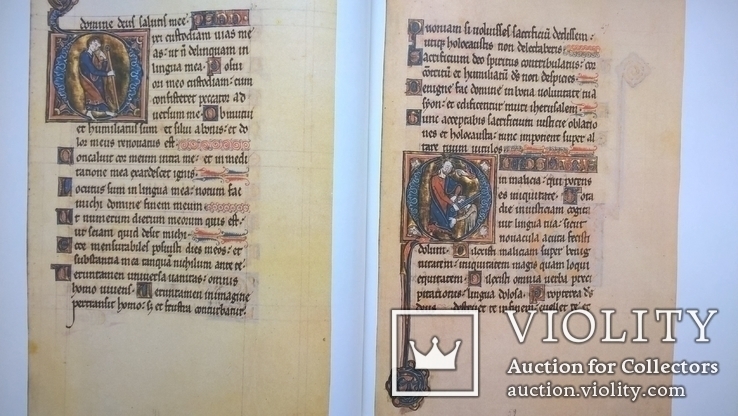 domine deus salutis mee
ixi custodiam vias me
as: ut non delinquam in
lingua mea. Posui
ori meo custodiam: cum
consisteret peccator ad
versum me. Obmutui
et humiliatus sum et silui a bonis: et do
lor meus renovatus est
Concaluit cor meum intra me: et in medi
tatione mea exardescet ignis.
Locutus sum in lingua mea: notum fac
michi domine finem meum
Et numerum dierum meorum quis est:
ut sciam quid desit michi
Ecce mensurabiles posuisti dies meos: et
substantia mea tanquam nichilum ante te
Veruntamen universa vanitas: omnis
homo vivens. Veruntamen in imagine
pertransit homo: sed et frustra conturbatur.
Quoniam si voluisses sacrificium dedissem
utique holocaustis non delectaberis
Sacrificium deo spiritus contribulatus: cor
contritum et humiliatum deus non despicies
Benigne fac domine in bona voluntate tua
syon: et edificentur muri iherusalem
Tunc acceptabis sacrificium iusticie oblatio
nes et holocausta: tunc imponent super al
tare tuum vitulos
in malicia: qui potens
es iniquitate. Tota
die iniusticiam cogita
vit lingua tua: sicut
novacula acuta fecisti
dolum. Dilexisti maliciam super benig
nitatem: iniquitatem magis quam loqui
equitatem. Dilexisti omnia verba preci
pitationis: lingua dolosa. Propterea deus
VIOLITY
Auction for Collectors
auction.violity.com